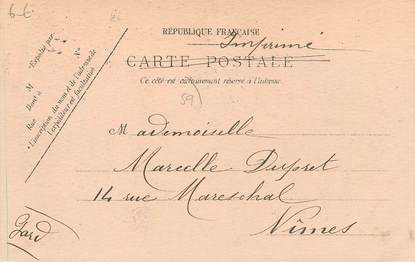 6 €
RÉPUBLIQUE FRANÇAISE
Imprimé
CARTE POSTALE
Ce côté est exclusivement réservé à l'adresse.
59
Expédié par
M
Dont a
Rue N°
L'inscription du nom et de l'adresse de
l'expéditeur est facultative
Mademoiselle
Marcelle Dupret
14 rue Mareschal
Nîmes
Gard